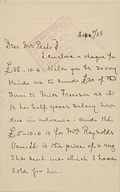 Sept/03
Dear Mr Peels
I enclose a cheque for
£35-10.6. Will you be so very
kind as to send £30 of the
sum to Miss Freeson as it
is her half year's salary now
due in advance - and the
£5-10.6 to Mrs Reynolds
is the price of a rug
She sent me which I have
sold for her.